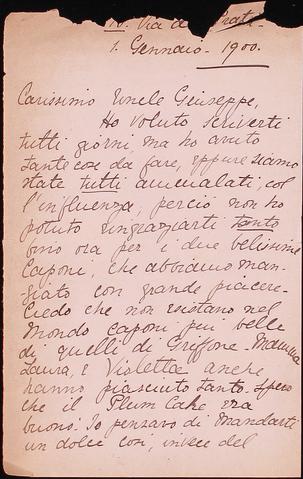 IV. Via de Prati.
1. Gennaio. 1900.
Carissimo Uncle Giuseppe,
Ho voluto scriverti
tutti giorni, ma ho avuto
tante cose da fare, eppure siamo
state tutti ammalati, col
l'influenza, perciò non ho
potuto ringraziarti tanto
fino ora per i due belissime
Caponi, che abbiamo man-
giato con grande piacere-
Credo che non esistano nel
Mondo caponi piu belle
di quelli di Griffone- Mamma
Laura, e Violetta anche
hanno piasciuto tanto. Spero
che il Plum Cake era
buono. Io penzavo di Mandarti
un dolce cosi, invece del